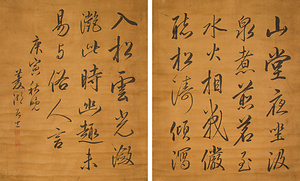 山堂夜坐汲
泉煮茗至
水火相戰儼
聽松濤傾瀉
入松雲光瀲
灔此時幽趣未
易与俗人言
庚寅秋晚